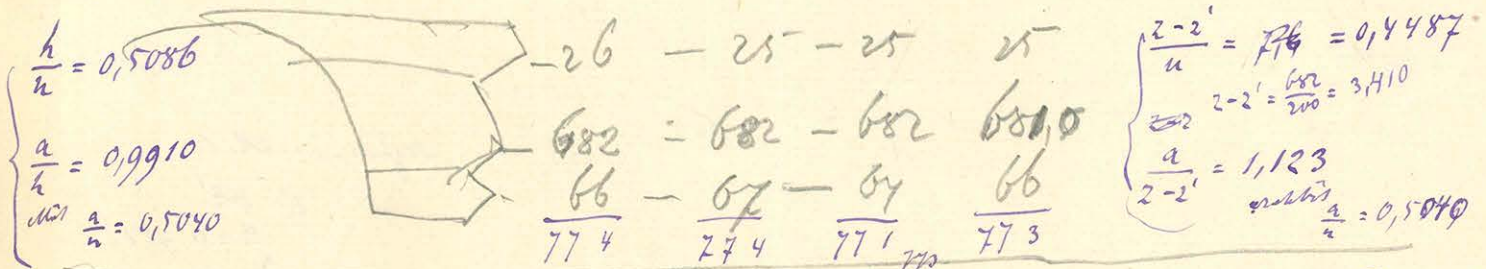 h/n = 0,5086
a/h = 0,9910
a/n = 0,5040
- 26 - 25 - 25 25
- 682 - 682 - 682 681,0
- 66 - 67 - 64 66
774 774 771 773
z-z'/n = = 0,4487
z-z' = 682/200 = 3,410
a/z-z' = 1,123
a/n = 0,5040